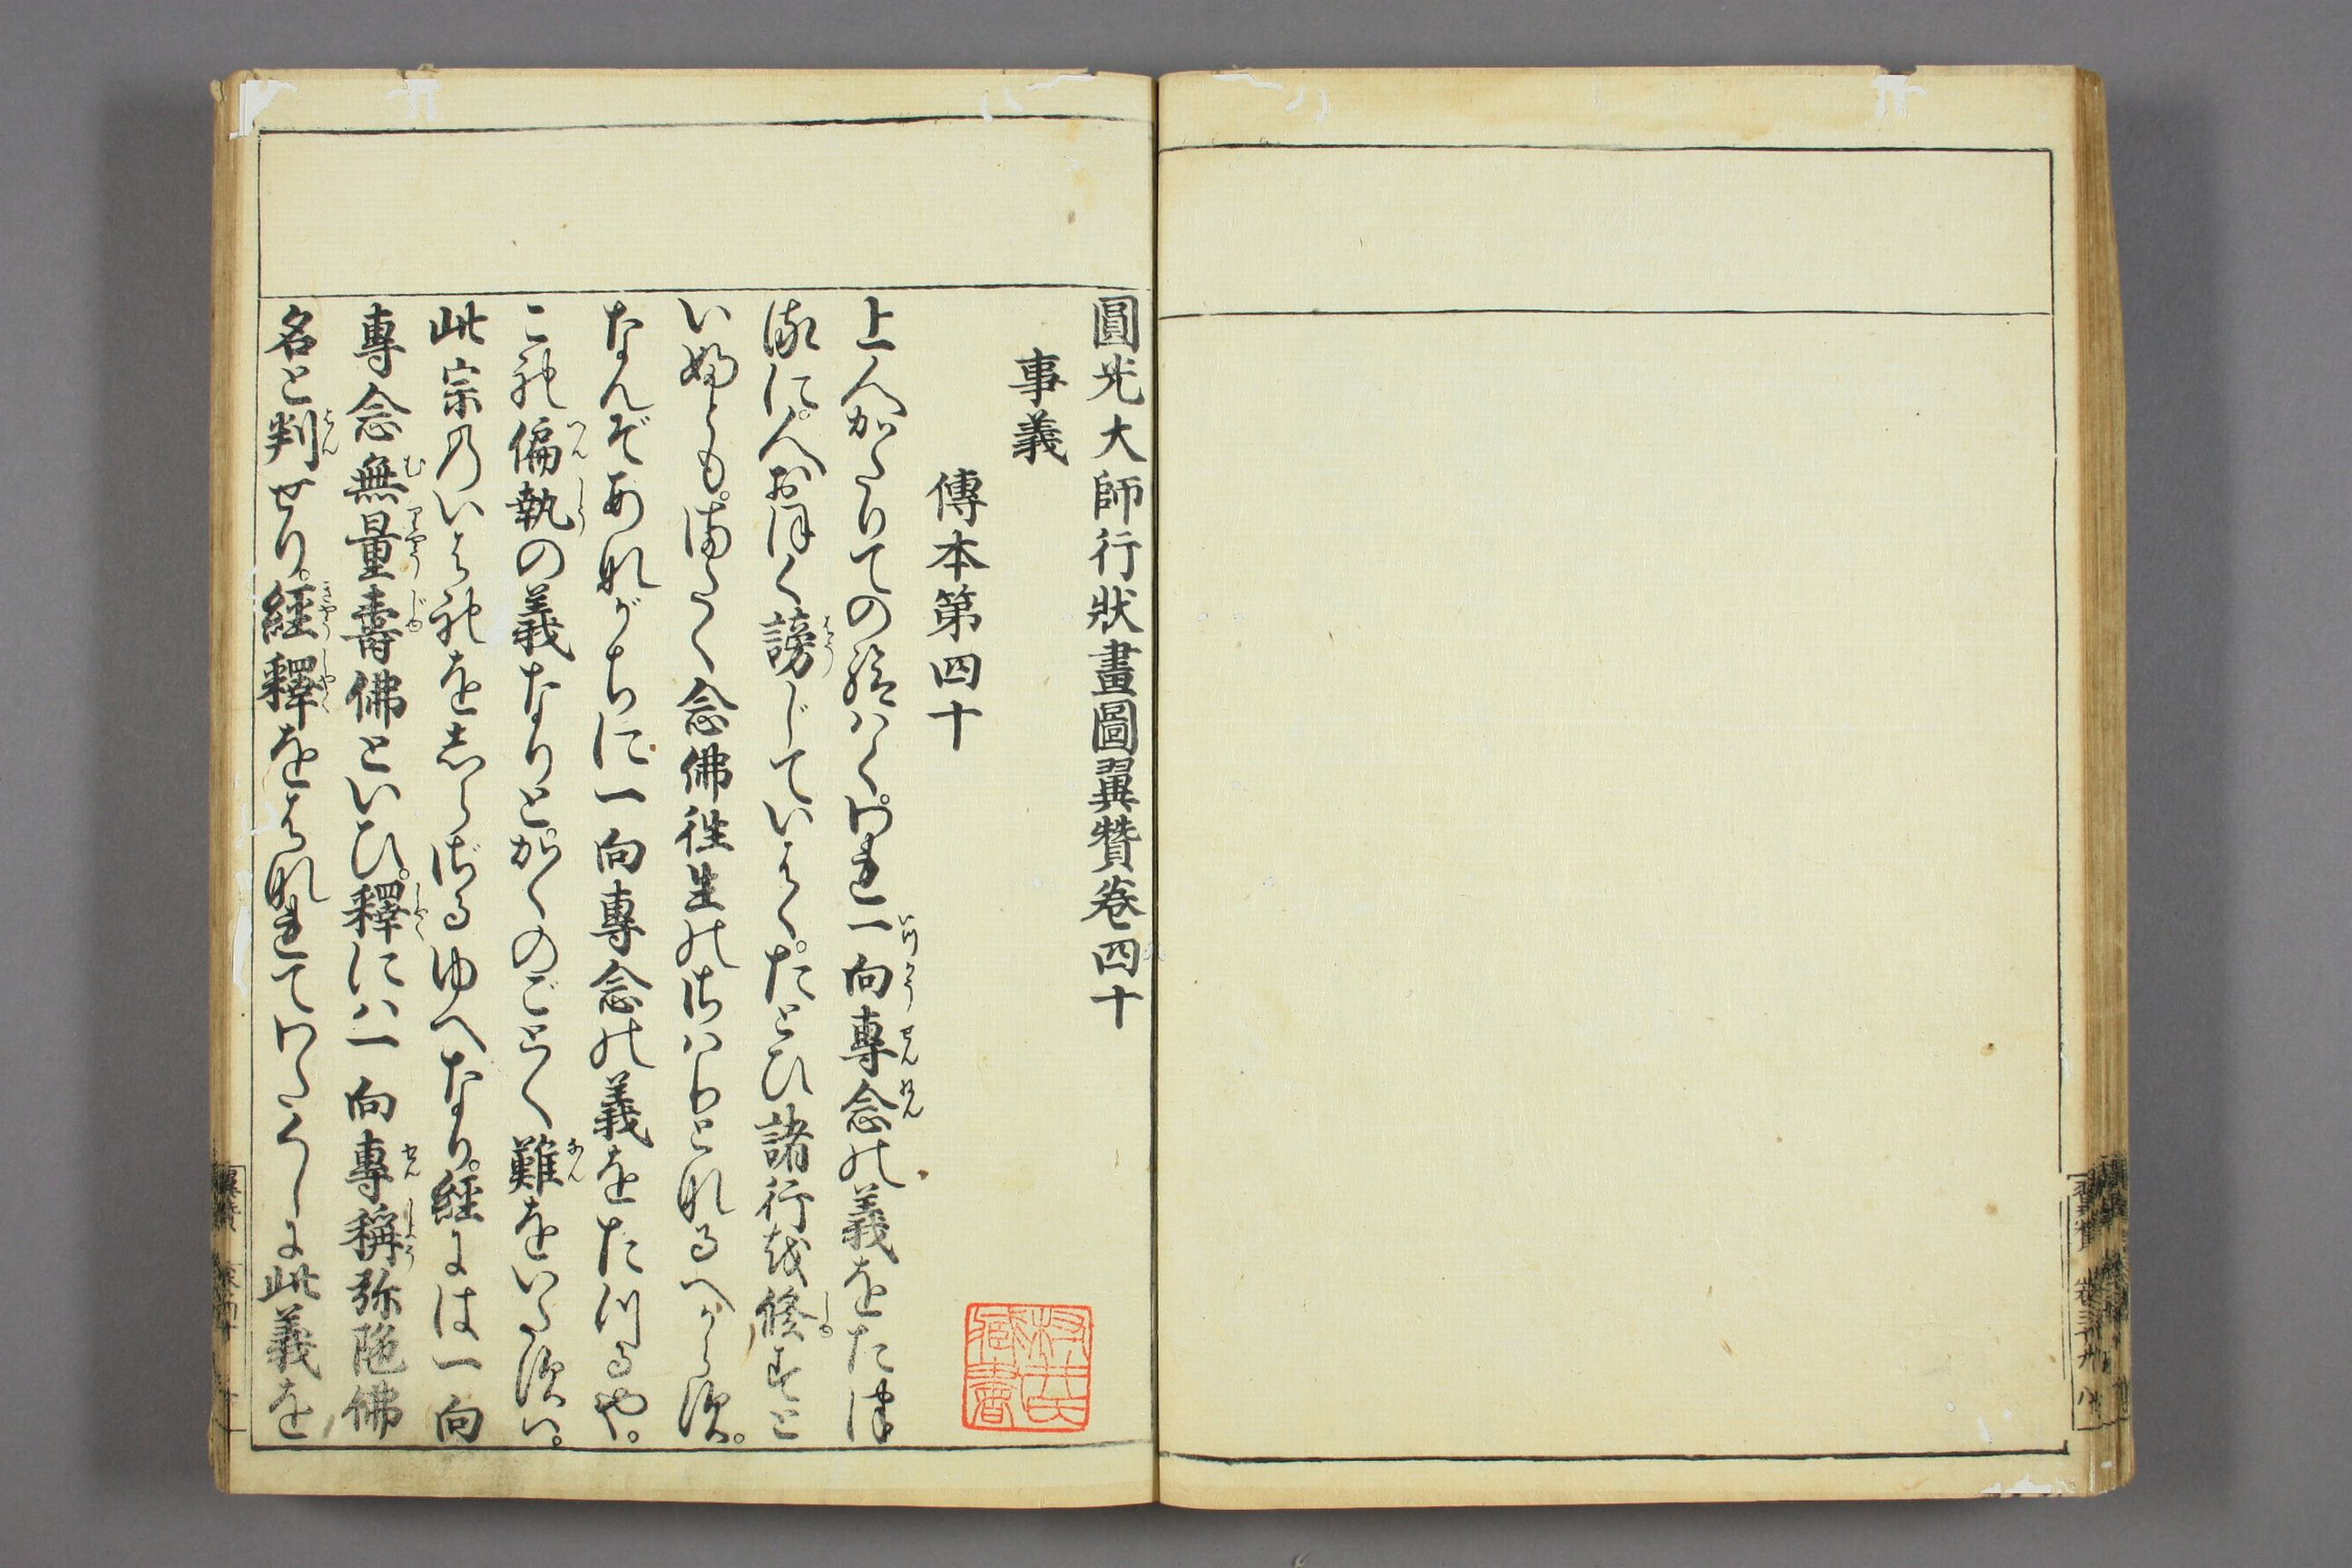 圓光大師行狀畫圖翼贊卷四十
事義
傳本第四十
上人かたりての給はく。われ一向專念の義をたつ
るに。人おほく謗じていはく。たとひ諸行を修すと
いふとも。またく念佛往生のさはりとなるへからす。
なんぞあながちに一向專念の義をたつるや。
これ偏執の義なりとかくのごとく難をいたすは。
此宗のいはれをしらざるゆへなり。經には一向
專念無量壽佛といひ。釋には一向專稱弥陀佛
名と判せり。經釋をはなれてわたくしに此義を